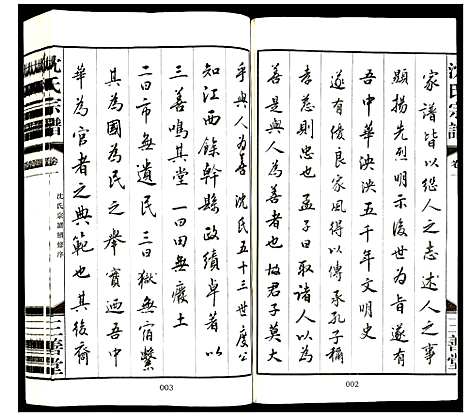 沈氏宗譜
卷一
三善堂
家譜皆以㳂人之志述人之事
顯揚先烈明示後世為旨遂有
吾中華泱泱五千年文明史
遂有優良家風得以傳承孔子稱
孝慈則忠也孟子曰取諸人以為
善是與人為善者也故君子莫大
002
乎與人為善沈氏五十三世度公
知江西餘幹縣政績卓著以
三善鳴其堂一曰田無廢土
二曰市無遺民三曰獄無宿繫
其為國為民之舉實迺吾中
華為官者之典範也其後裔
沈氏宗譜
卷一
沈氏宗譜續修序
三善堂
003